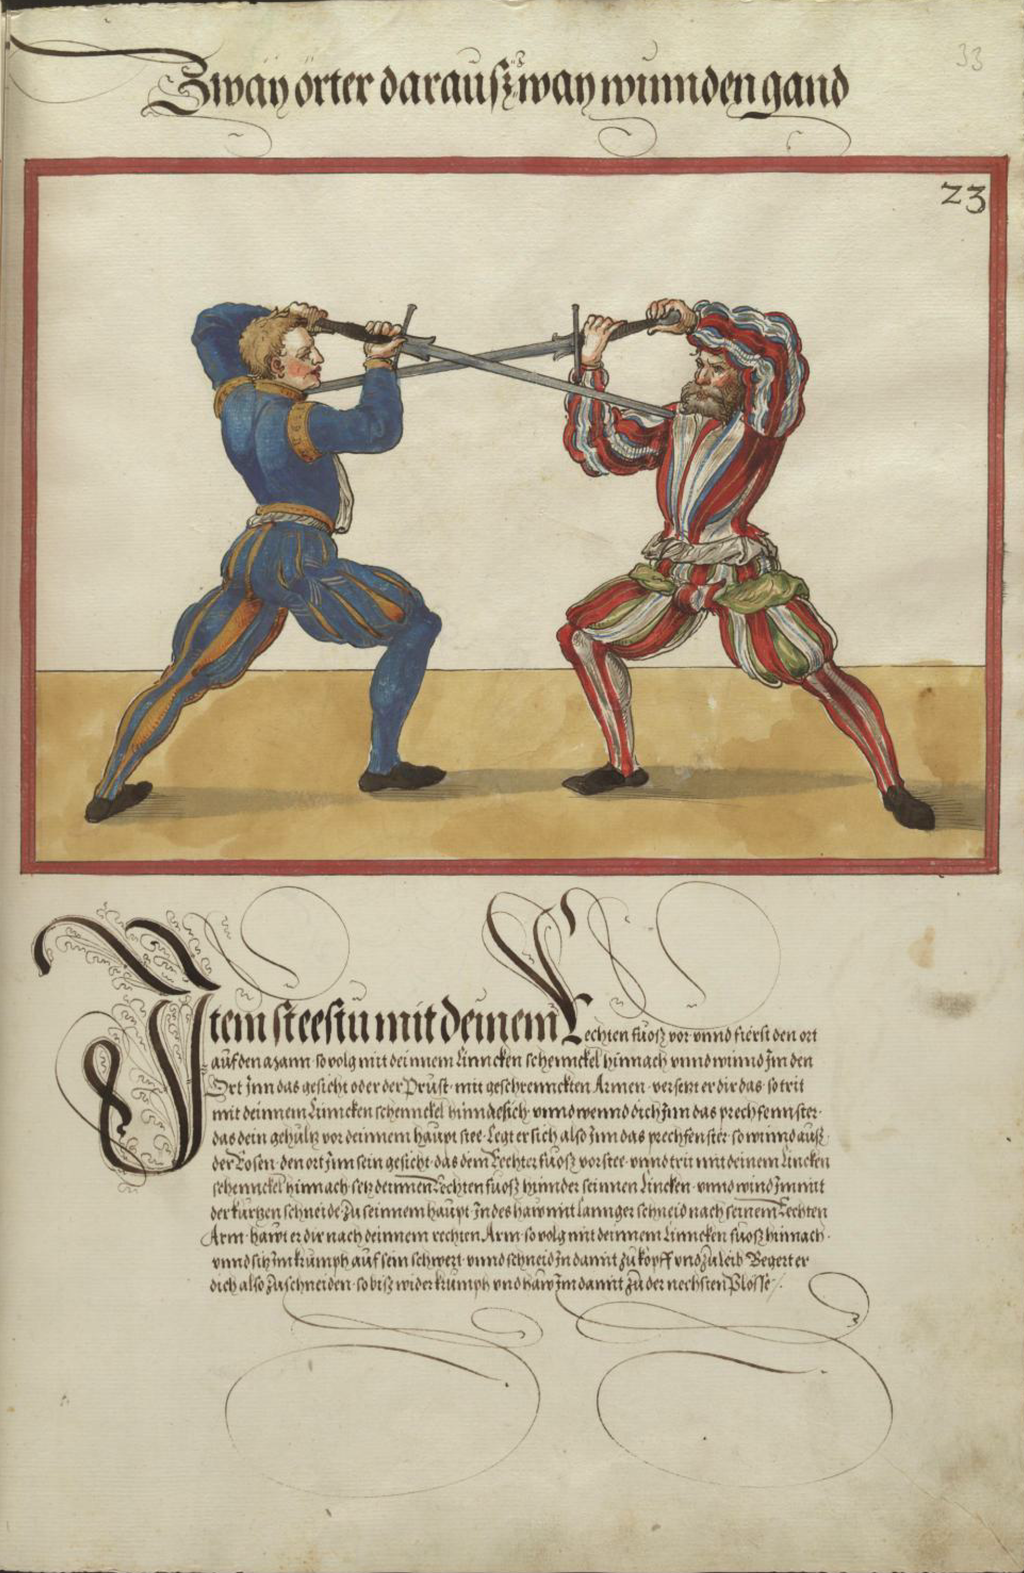 33
Zway örter darauß zway wunnden gand
23
Item steestu mit deinem Rechten fuosz vor vnnd fierst den ort
auf den azann so volg mit deinnem Linncken schennckel hinnach vnnd winnd Jm den
Ort Jnn das gesicht oder der Prust mit geschrennckten Armen versetzt er dir das so trit
mit deinnem Linncken schennckel hinndersich vnnd wennd dich Jnn das prechfennster
das dein gehültz vor deinnem haupt stee Legt er sich also Jnn das prechfenster so winnd ausz
der Rosen den ort Jnn sein gesicht das dein Rechter fuosz vorstee vnnd trit mit deinem Lincken
schennckel hinnach setz deinnen Rechten fuosz hinnder seinnen Lincken vnnd wind Jm mit
der kurtzen schneide zu seinnem haupt Jndes haw mit lannger schneid nach seinem Rechten
Arm hawt er dir nach deinnem rechten Arm so volg mit deinnem Linncken fuosz hinnach
vnnd sitz Jm krumph auf sein schwert vnnd schneid Jn damit zu kopff vnd zu leib Begert er
dich also zu schneiden so bisz wider krumph vnd haw Jm damit zu der nechsten Plosse